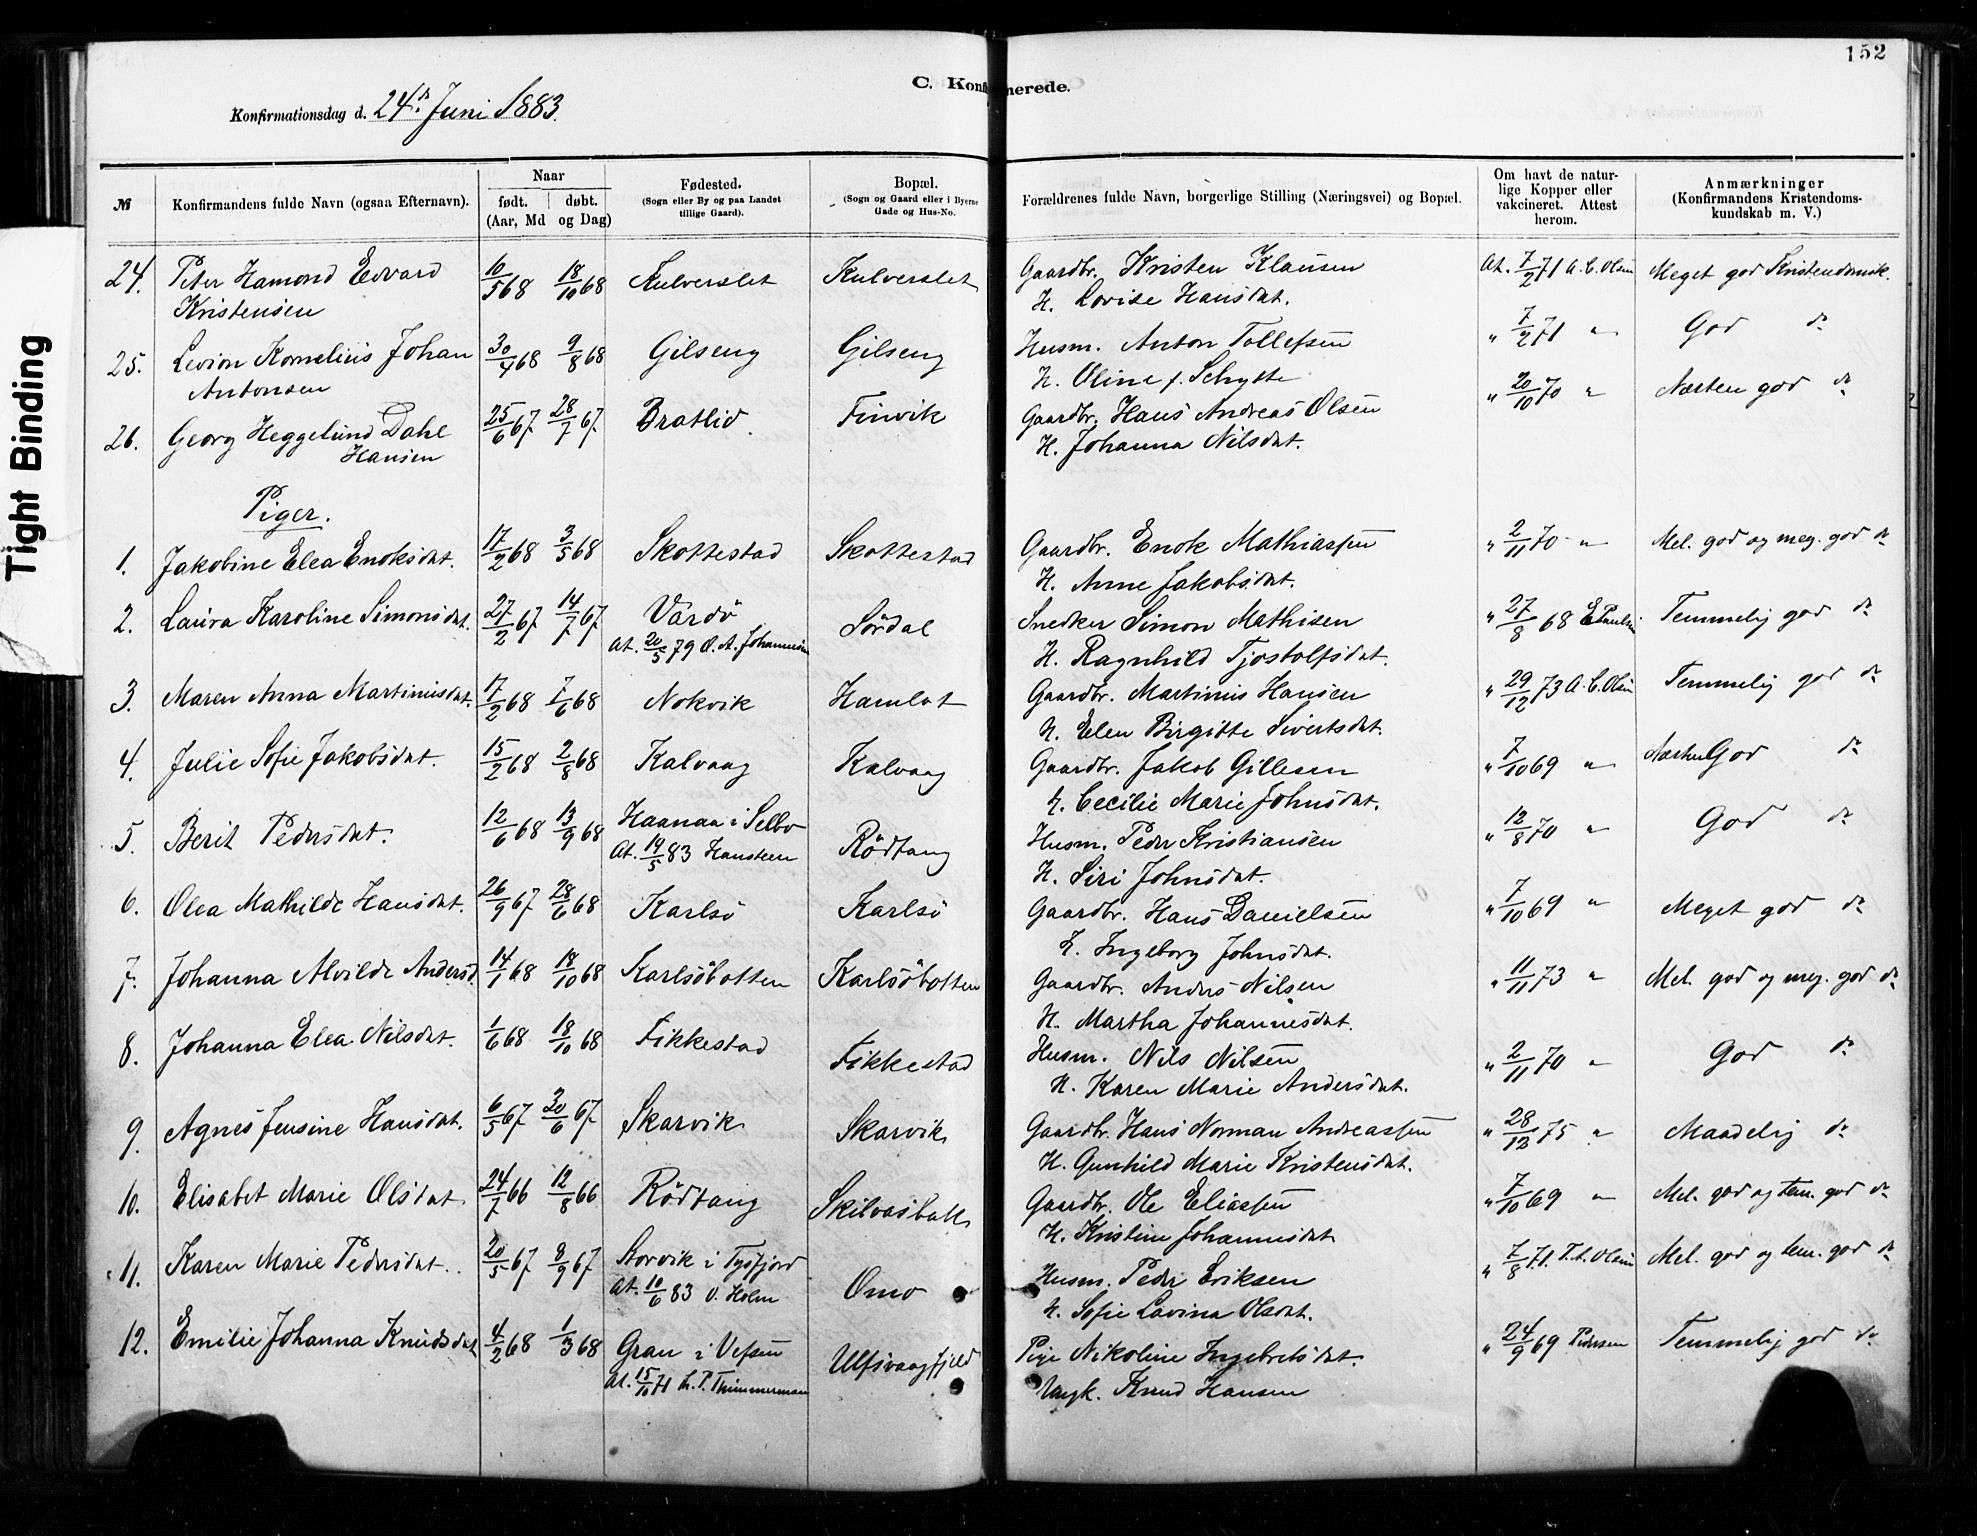 152
C. Konfirmerede.
Konfirmationsdag d. 24de Juni 1883.
Tight Binding
№
Konfirmandens fulde Navn (ogsaa Efternavn).
Naar
født.
døbt.
(Aar, Md og Dag)
Fødested.
(Sogn eller By og paa Landet
tillige Gaard).
Bopæl.
(Sogn og Gaard eller i Byerne
Gade og Hus-No.
Forældrenes fulde Navn, borgerlige Stilling (Næringsvei) og Bopæl.
Om havt de natur-
lige Kopper eller
vakcineret. Attest
herom.
Anmærkninger
(Konfirmandens Kristendoms-
kundskab m. V.)
24. Peter Hamond Edvard 10/5 68 18/10 68 Kulverslet Kulverslet Gaardbr. Kristen Klausen At. 7/2 71 A. C. Olsen Meget god Kristendomsk.
Kristensen H. Lovise Hansdat.
25. Levion Kornelius Johan 30/4 68 9/8 68 Gilseng Gilseng Husm. Anton Tollefsen " 7/2 71 " God do
Antonsen H. Oline f. Schytte
26. Georg Heggelund Dahl 25/6 67 28/7 67 Bratlid Finvik Gaardbr. Hans Andreas Olsen " 20/10 70 " Næsten god do
Hansen H. Johanna Nilsdat.
Piger.
1. Jakobine Elea Enoksdat. 17/2 68 3/5 68 Skottestad Skottestad Gaardbr. Enok Mathiassen " 2/11 70 " Mel. god og meg. god do
H. Anne Jakobsdat.
2. Laura Karoline Simonsdat. 27/2 67 14/7 67 Vardö Sördal Snedker Simon Mathisen " 27/8 68 E Paulsen Temmelig god do
At. 20/5 79 O. A. Johannesen H. Ragnhild Tjostolfsdat.
3. Maren Anna Martinusdat. 17/2 68 7/6 68 Nokvik Hamlot Gaardbr. Martinus Hansen " 29/12 73 A. C. Olsen Temmelig god do
H. Elen Birgitte Sivertsdat.
4. Julie Sofie Jakobsdat. 15/2 68 2/8 68 Kalvaag Kalvaag Gaardbr. Jakob Gillesen " 7/10 69 " Næsten God do
H. Cecilie Marie Johnsdat.
5. Berit Pedersdat. 12/6 68 13/9 68 Haanaa i Selbo Rödtang Husm. Peder Kristiansen " 12/8 70 " God do
At. 14/5 83 Hansteen H. Siri Johnsdat.
6. Olea Mathilde Hansdat. 26/9 67 28/6 68 Karlsö Karlsö Gaardbr. Hans Danielsen " 7/10 69 " Meget god do
H. Ingeborg Johnsdat.
7. Johanna Alvilde Andersd. 14/1 68 18/10 68 Karlsöbotten Karlsöbotten Gaardbr. Anders Nilsen " 11/11 73 " Mel. god og meg. god do
H. Martha Johannesdat.
8. Johanna Elea Nilsdat. 1/6 68 18/10 68 Fikkestad Fikkestad Husm. Nils Nilsen " 2/11 70 " God do
H. Karen Marie Andersdat.
9. Agnes Jensine Hansdat. 6/5 67 30/6 67 Skarvik Skarvik Gaardbr. Hans Norman Andreassen " 28/12 75 " Maadelig do
H. Gunhild Marie Kristensdat.
10. Elisabet Marie Olsdat. 24/7 66 12/8 66 Rödtang Skilvasbak Gaardbr. Ole Eliassen " 7/10 69 " Mel. god og tem. god do
H. Kristine Johannesdat.
11. Karen Marie Pedersdat. 20/5 67 8/9 67 Storvik i Tysfjord Omo Husm. Peder Eriksen " 7/8 71. T. A. Olsen Mel. god og tem. god do
At. 10/6 83 O. Holm H. Sofie Lavina Olsdat.
12. Emilie Johanna Knudsdat. 4/2 68 1/3 68 Gran i Vefsen Ulfsvaagfjeld Pige Nikoline Ingebretsdat. " 24/9 69 Pedersen Temmelig god do
At. 15/10 71 L. P. Thimmerman Ungk. Knud Hansen